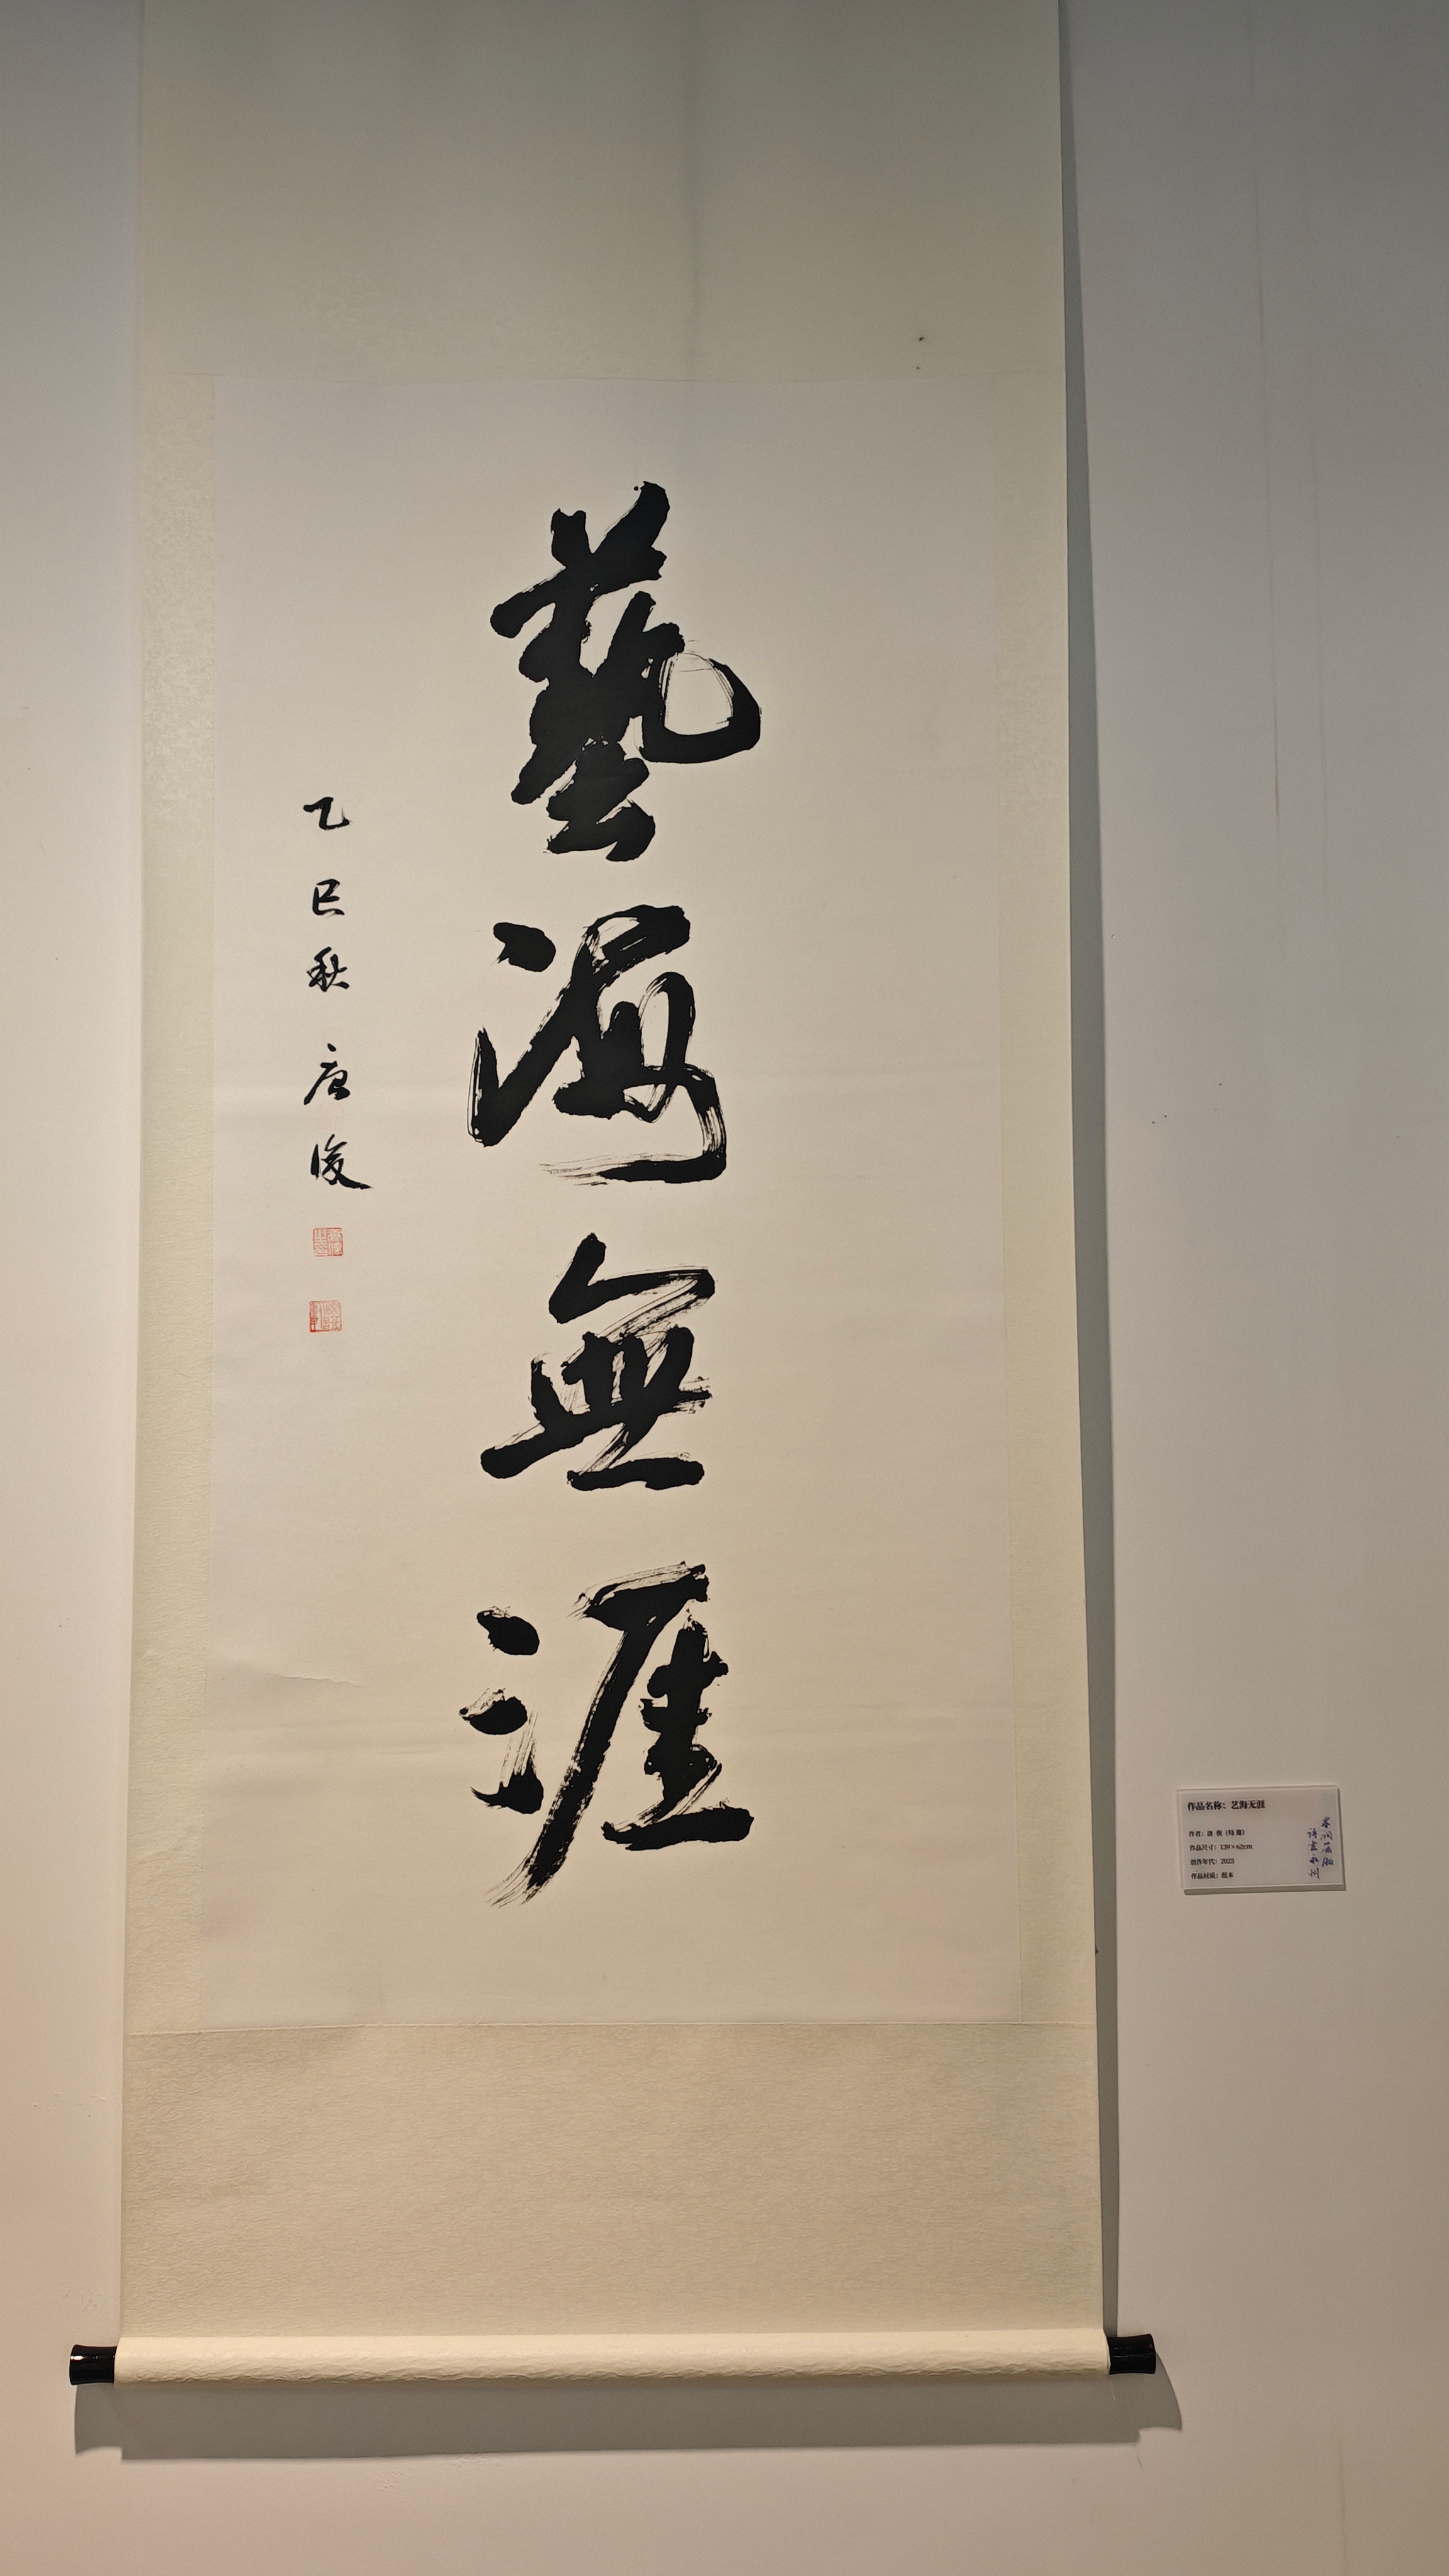 藝海無涯
乙巳秋 唐俊
作品名称：艺海无涯
作者：唐 俊（特邀）
作品尺寸：139×62cm
创作年代：2025
作品材质：纸本